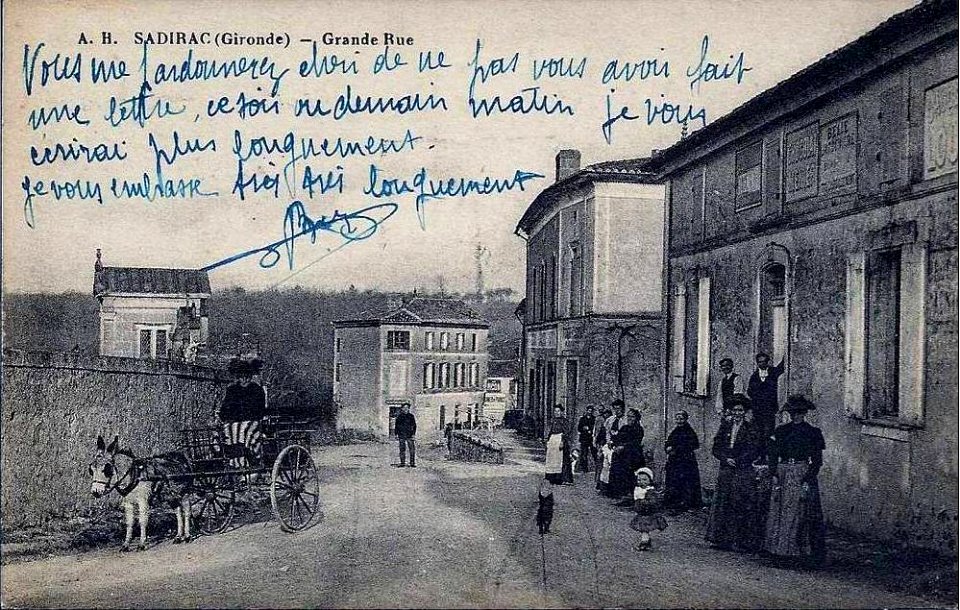 A. H. SADIRAC (Gironde) – Grande Rue
Vous me pardonnerez chéri de ne pas vous avoir fait
une lettre, ce soir ou demain matin je vous
écrirai plus longuement.
je vous embrasse très très longuement